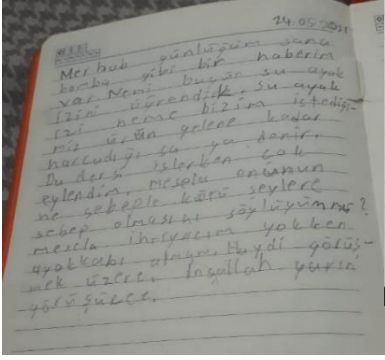 24.05.2021
Merhub günlüğüm sana
bomba gibi bir haberim
var. Nemi bugün su ayak
izini öğrendik. Su ayak
izi neme bizim istediği-
miz ürün gelene kadar
harcadığı su ya denir.
Bu dersi işlerken çok
eylendim. Mesela onunun
ne sebeple kötü şeylere
sebep olmasını söylüyümmü?
mesela ihtiyacım yokken
ayakkabı almam. Haydi görüş-
mek üzere. İnşallah yarın
görüşürüz.